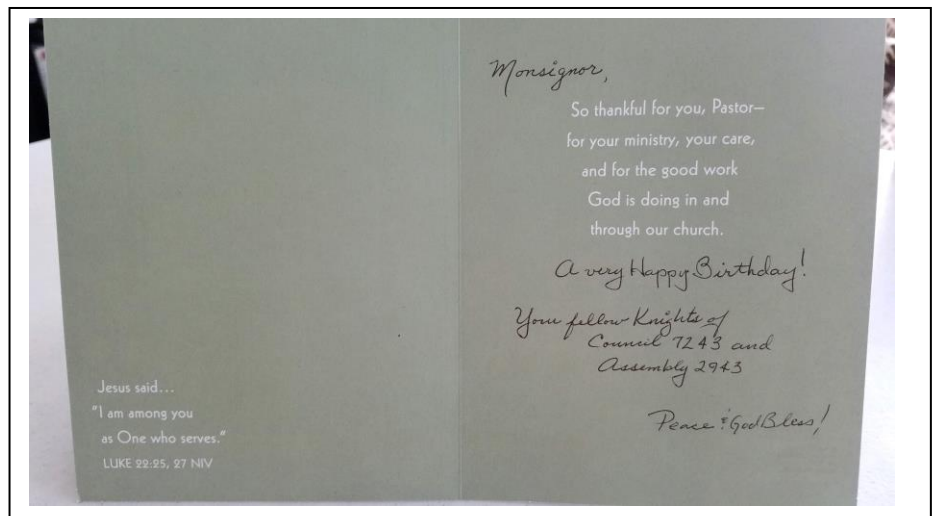 Jesus said...
"I am among you
as One who serves."
LUKE 22:25, 27 NIV
Monsignor,
So thankful for you, Pastor—
for your ministry, your care,
and for the good work
God is doing in and
through our church.
A very Happy Birthday!
Your fellow Knights of
Council 7243 and
Assembly 2943
Peace & God Bless!